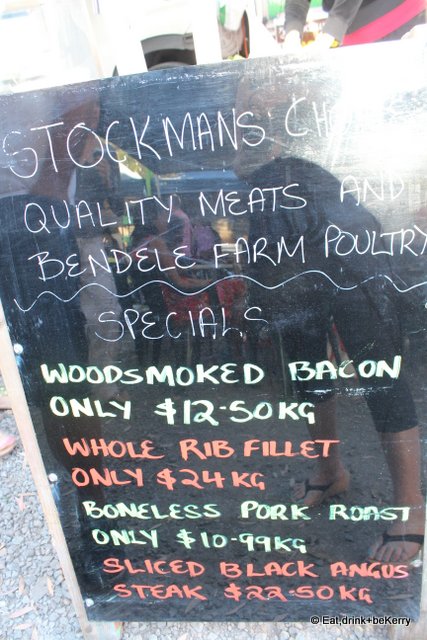 STOCKMANS
QUALITY MEATS AND
BENDELE FARM POULTRY
SPECIALS
WOODSMOKED BACON
ONLY $12-50KG
WHOLE RIB FILLET
ONLY $24KG
BONELESS PORK ROAST
ONLY $10-99KG
SLICED BLACK ANGUS
STEAK $22-50KG
© Eat,drink+beKerry